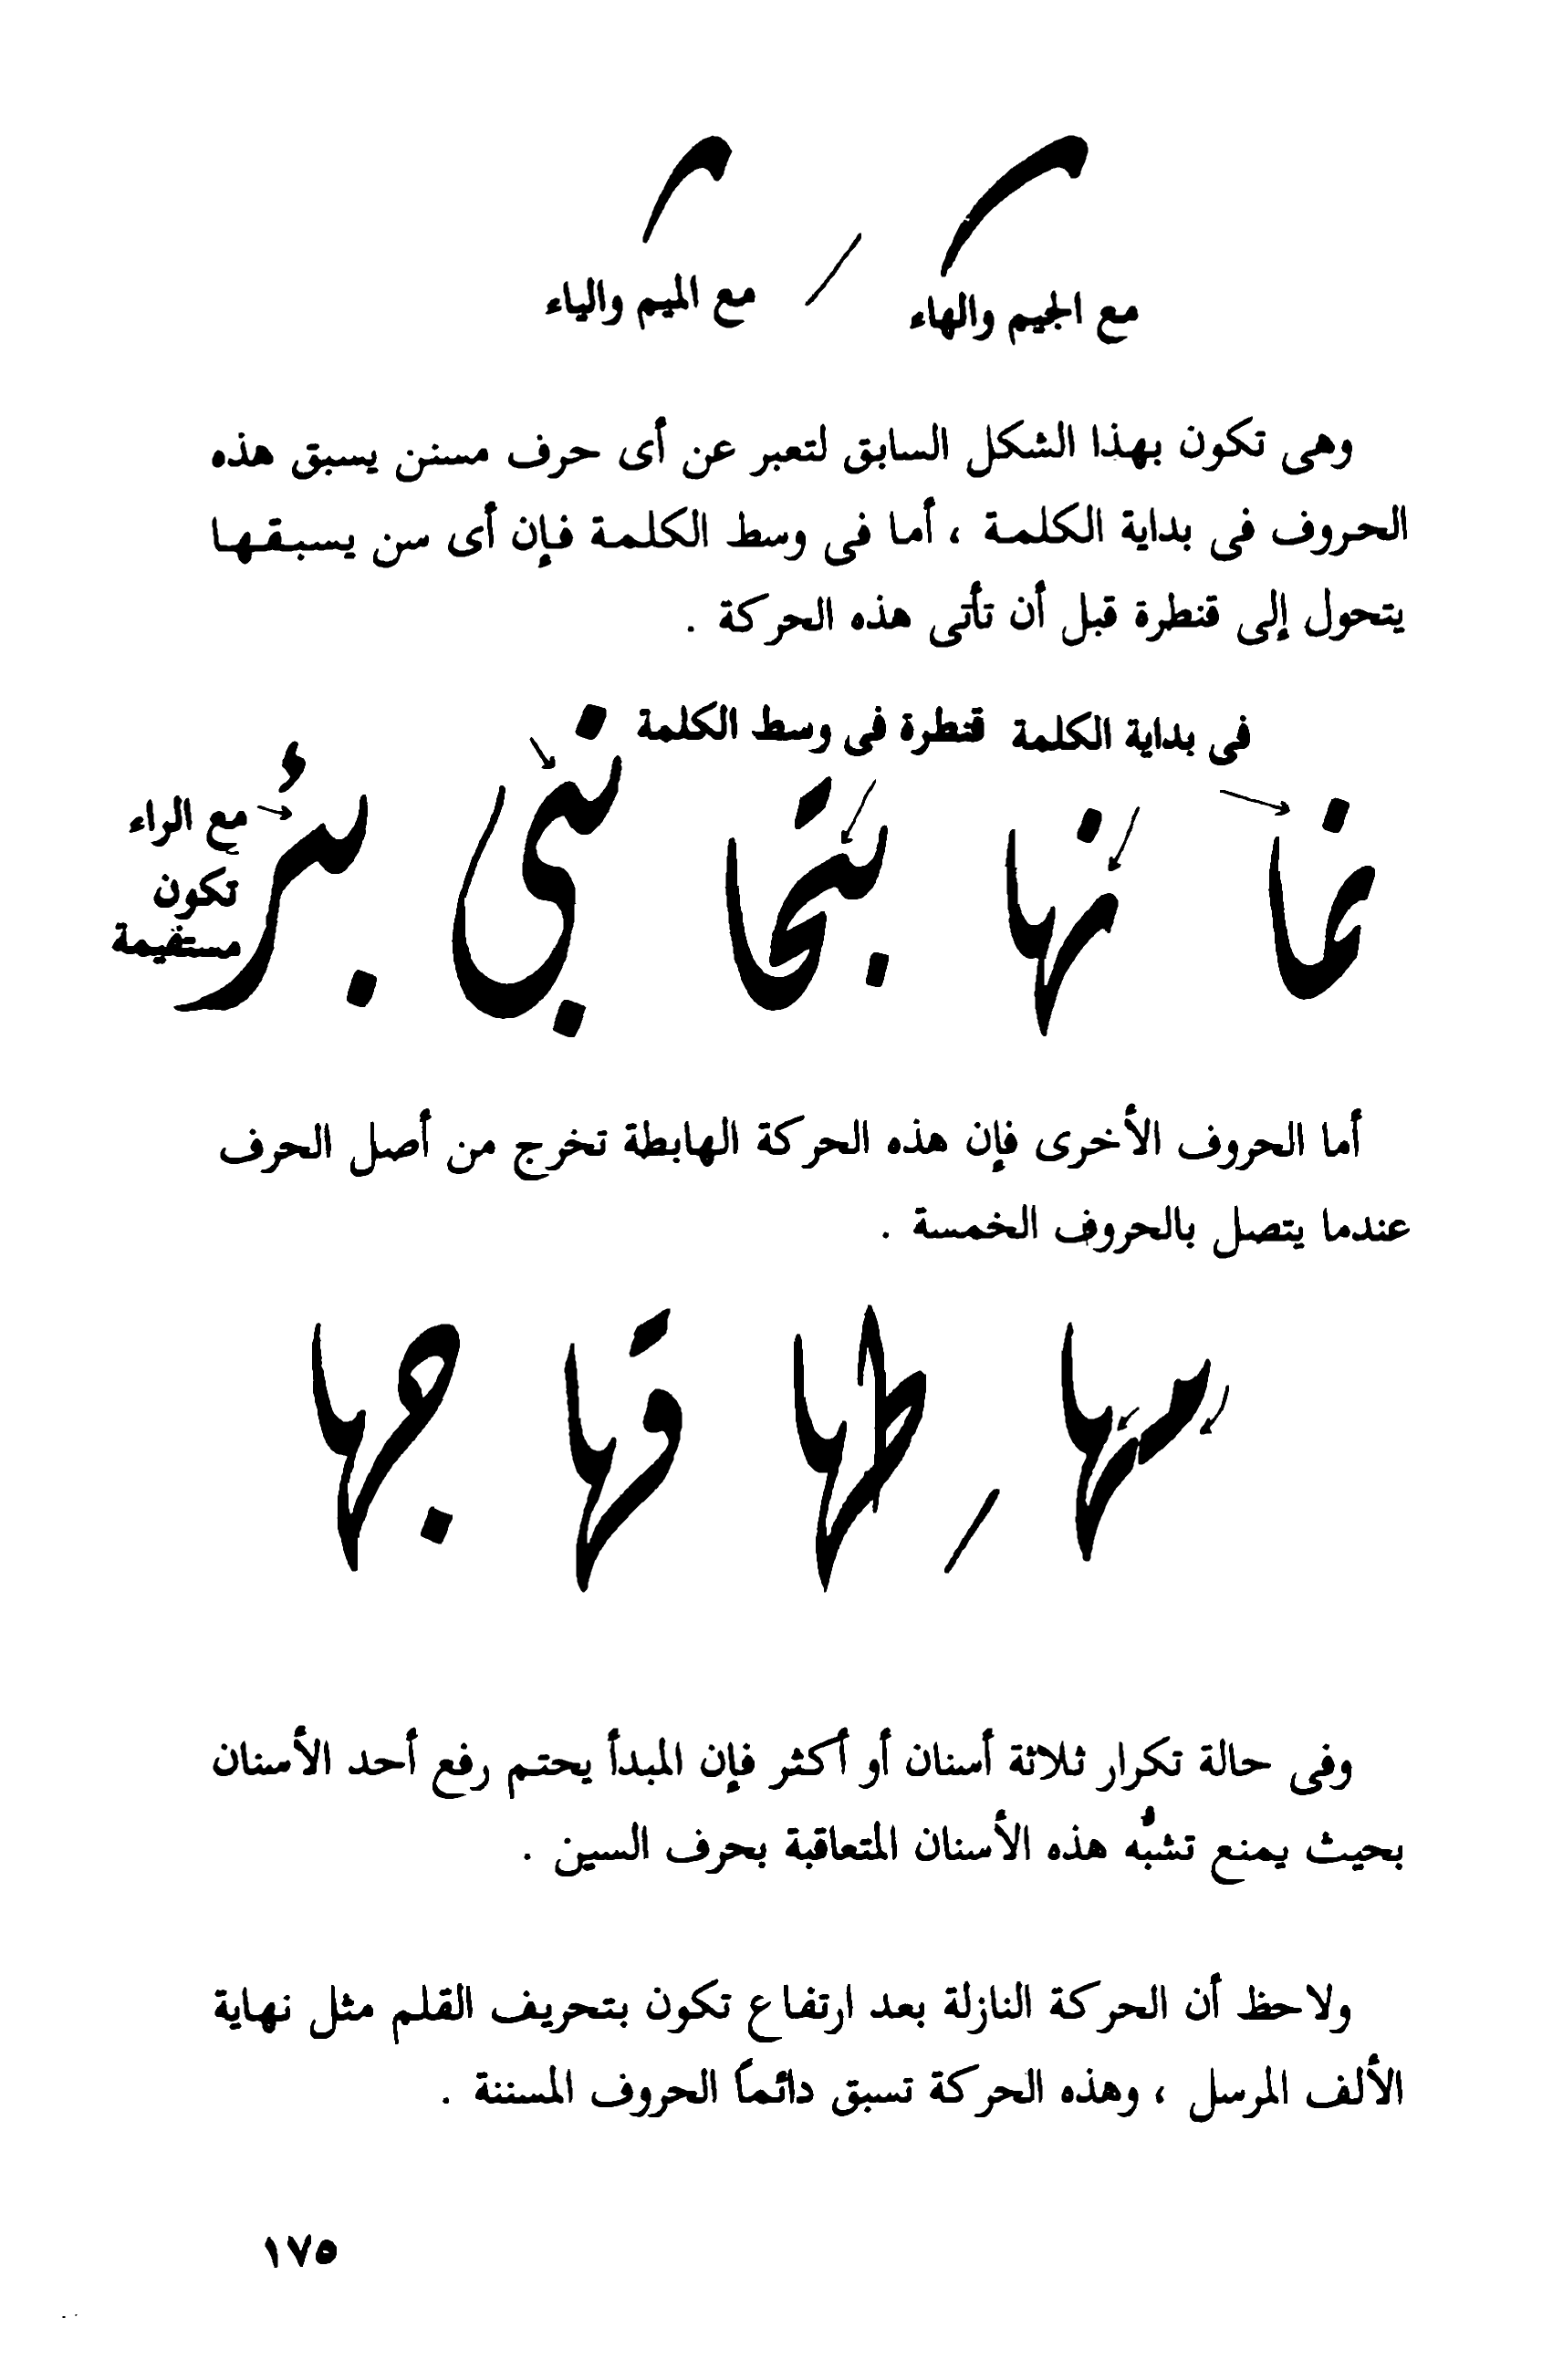 مع الجيم والهاء
مع الميم والياء
وهى تكون بهذا الشكل السابق لتعبر عن أى حرف مسنن يسبق هذه
الحروف فى بداية الكلمة ، أما فى وسط الكلمة فإن أى سن يسبقها
يتحول إلى قنطرة قبل أن تأتى هذه الحركة .
فى بداية الكلمة
قنطرة فى وسط الكلمة
نما نها بتحا نبى بئر
مع الراء
تكون
مستقيمة
أما الحروف الأخرى فإن هذه الحركة الهابطة تخرج من أصل الحرف
عندما يتصل بالحروف الخمسة .
سها طها قها جها
وفى حالة تكرار ثلاثة أسنان أو أكثر فإن المبدأ يحتم رفع أحد الأسنان
بحيث يمنع تشبُّه هذه الأسنان المتعاقبة بحرف السين .
ولاحظ أن الحركة النازلة بعد ارتفاع تكون بتحريف القلم مثل نهاية
الألف المرسل ، وهذه الحركة تسبق دائماً الحروف المسننة .
١٧٥